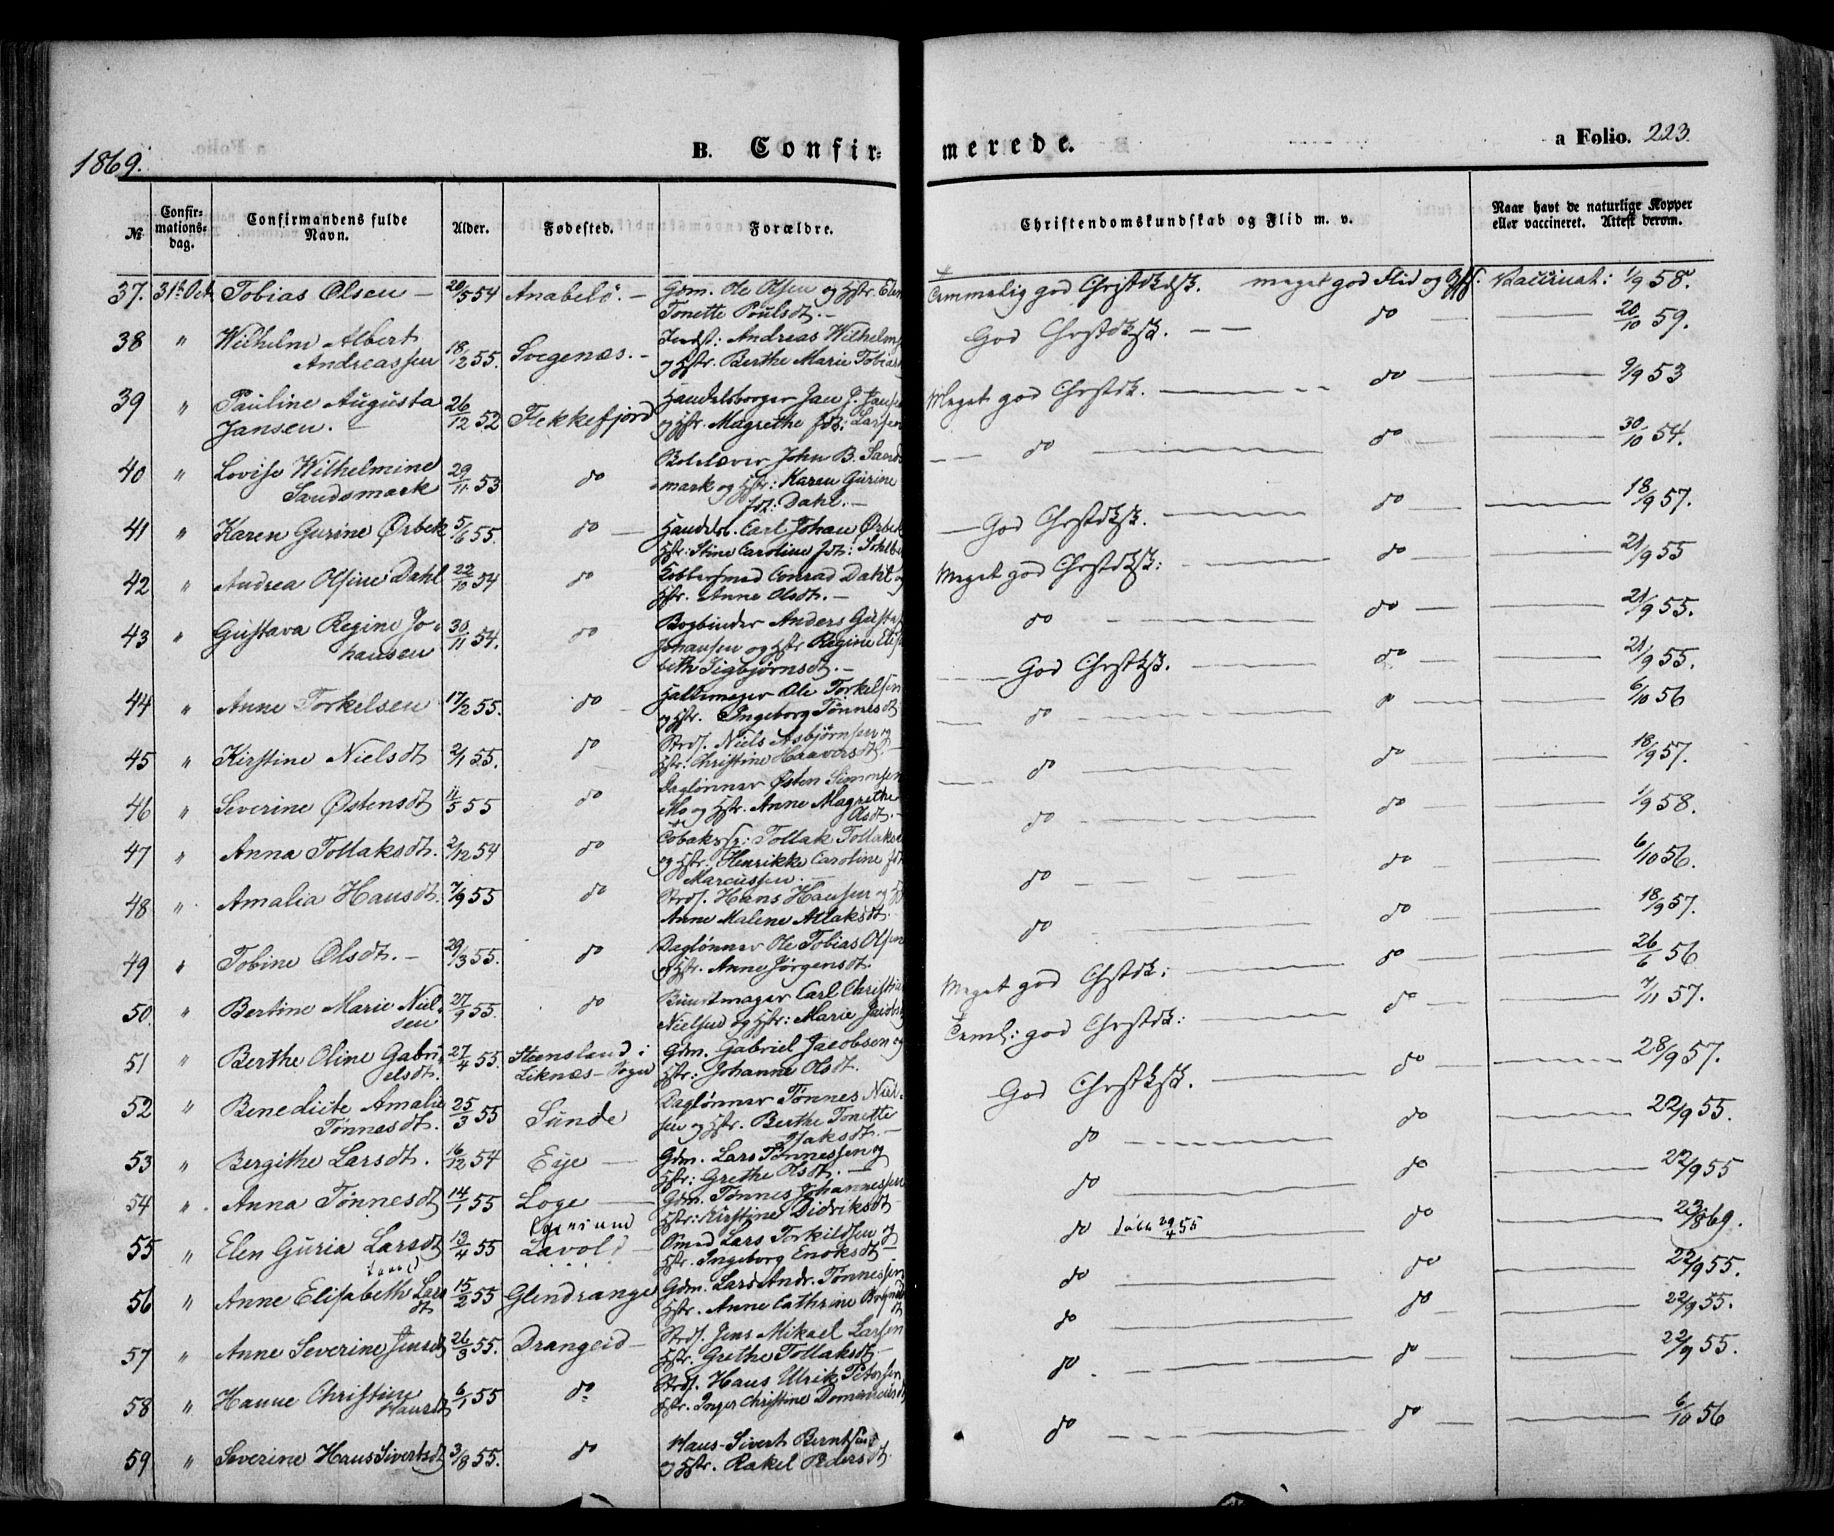 1869.
B. Confir-
merede.
a Folio. 223.
№
Confir-
mations-
dag.
Confirmandens fulde
Navn.
Alder.
Fødested.
Forældre.
Christendomskundskab og Flid m. v.
Naar havt de naturlige Kopper
eller vaccineret. Attest derom.
37. 31te Oct. Tobias Olsen – 20/5 54 Anabelø. – Gdm. Ole Olsen og Hstr. Elen
Tonette Poulsdt. –
Temmelig god Chrstdksk. meget god Flid og Opf. Vaccinat: 1/9 58.
38 " Wilhelm Albert
Andreassen 18/2 55. Svegenæs. – Indst: Andreas Wilhelms
og Hstr. Berthe Marie Tobias
God Chrstdksk. do 20/10 59.
39 " Pauline Augusta
Jansen. – 26/12 52 Flekkefjord Handelsborger Jan J. Jansen
og Hstr. Magrethe fdt: Larsen
Meget god Chrstdk. do 9/9 53
40 " Lovise Wilhelmine
Sandsmark 29/11 53 do John B. Sands
mark og Hstr: Karen Gurine
fdt: Dahl. –
do do 30/10 54.
41 " Karen Gurine Ørbek 5/6 55. do Handelsb. Carl Johan Ørbek
Hstr: Stine Caroline fdt:
God Chrstdksk. do 18/9 57.
42 " Andrea Olsine Dahl 22/10 54 do Kobbersmed Conrad Dahl og
Hstr. Anne Olsdt. –
Meget god Chrstdksk: do 21/9 55
43 " Gustava Regine Jo-
hansen 30/11 54. do Bogbinder Anders Gustav
Johansen og Hstr Regine Elisa
beth Sigbjørnsdt. –
do do 21/9 55.
44 " Anne Torkelsen 17/2 55. do Ole Torkelsen
og Hstr. Ingeborg Tønnesdt
God Chrstksk. do 21/9 55.
45 " Kirstine Nielsdt 2/1 55. do Strds. Niels Asbjørnsen og
Hstr: Christine Haaversdt. –
do " 6/10 56
46 " Severine Østensdt 11/5 55 do Daglønner Østen Simonsen
Mo og Hstr. Anne Magrethe
Olsdt. –
do do 18/9 57.
47 " Anna Tollaksdt. 2/12 54 do Tollak Tollaks
og Hstr. Henrikke Caroline fdt
Marcussen. –
do do 1/9 58.
48 " Amalia Hansdt. 7/9 55 do Strds. Hans Hansen og H
Anne Malene Atlaksdt.
do do 6/10 56.
49 " Tobine Olsdt. – 29/3 55. do Daglønner Ole Tobias Olsen
og Hstr. Anne Jørgensdt.
do do 18/9 57.
50. " Bertine Marie Niel-
sen 27/1 55. do Buntmager Carl Christia
Nielsen og Hstr: Marie Jacobs
Meget god Chrstdk: do 26/6 56
51 " Berthe Oline Gabri-
elsdt. 27/4 55. Steensland i
Liknæs-Sogn Gdm. Gabriel Jacobsen og
Hstr: Johanne Olsdt.
Teml: god Chrstdk: do 7/11 57.
52 " Benedicte Amalie
Tønnesdt. 25/3 55 Sunde Daglønner Tønnes Niel-
sen og Hstr. Berthe Tonette
Isaksdt. –
God Chrstksk. do 28/9 57.
53 " Bergithe Larsdt. 16/12 54 Eije – Gdm. Lars Tønnessen og
Hstr: Grethe Olsdt. –
do do 22/9 55.
54 " Anna Tønnesdt 14/1 55 Loge – Gdm. Tønnes Johannessen
Hstr: Kirstine Didriksdt –
do do 22/9 55
55 " Elen Guria Larsdt 13/4 55 Egersund
Lavold – Smed Lars Torkildsen og
Hstr. Ingeborg Enoksdt –
do døbt 29/4 55 do 23/ 869.
56 " Anne Elisabeth Lars
dt 15/2 55 Glendrange Gdm. Lars Andr. Tønnessen
Hstr. Anne Cathrine
do do 22/9 55.
57 " Anne Severine Jensdt 26/3 55. Drangeid – Strds. Jens Mikael Larsen
Hstr. Grethe Tollaksdt –
do do 22/9 55.
58 " Hanne Christine
Hansdt 6/1 55 do Strds. Hans Ulrik Petersen
Hstr. Inger Christine Domineusdt
do do 22/9 55.
59 " Severine Hans Sivertsdt 3/8 55. do Hans Sivert Berntsen
og Hstr. Rakel Pedersdt.
do do 6/10 56